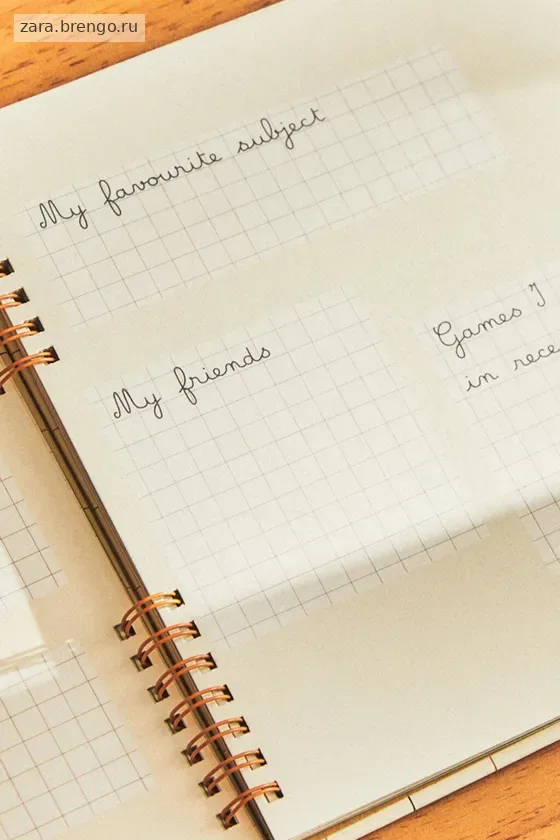 zara.brengo.ru
My favourite subject
My friends
Games I
in rece